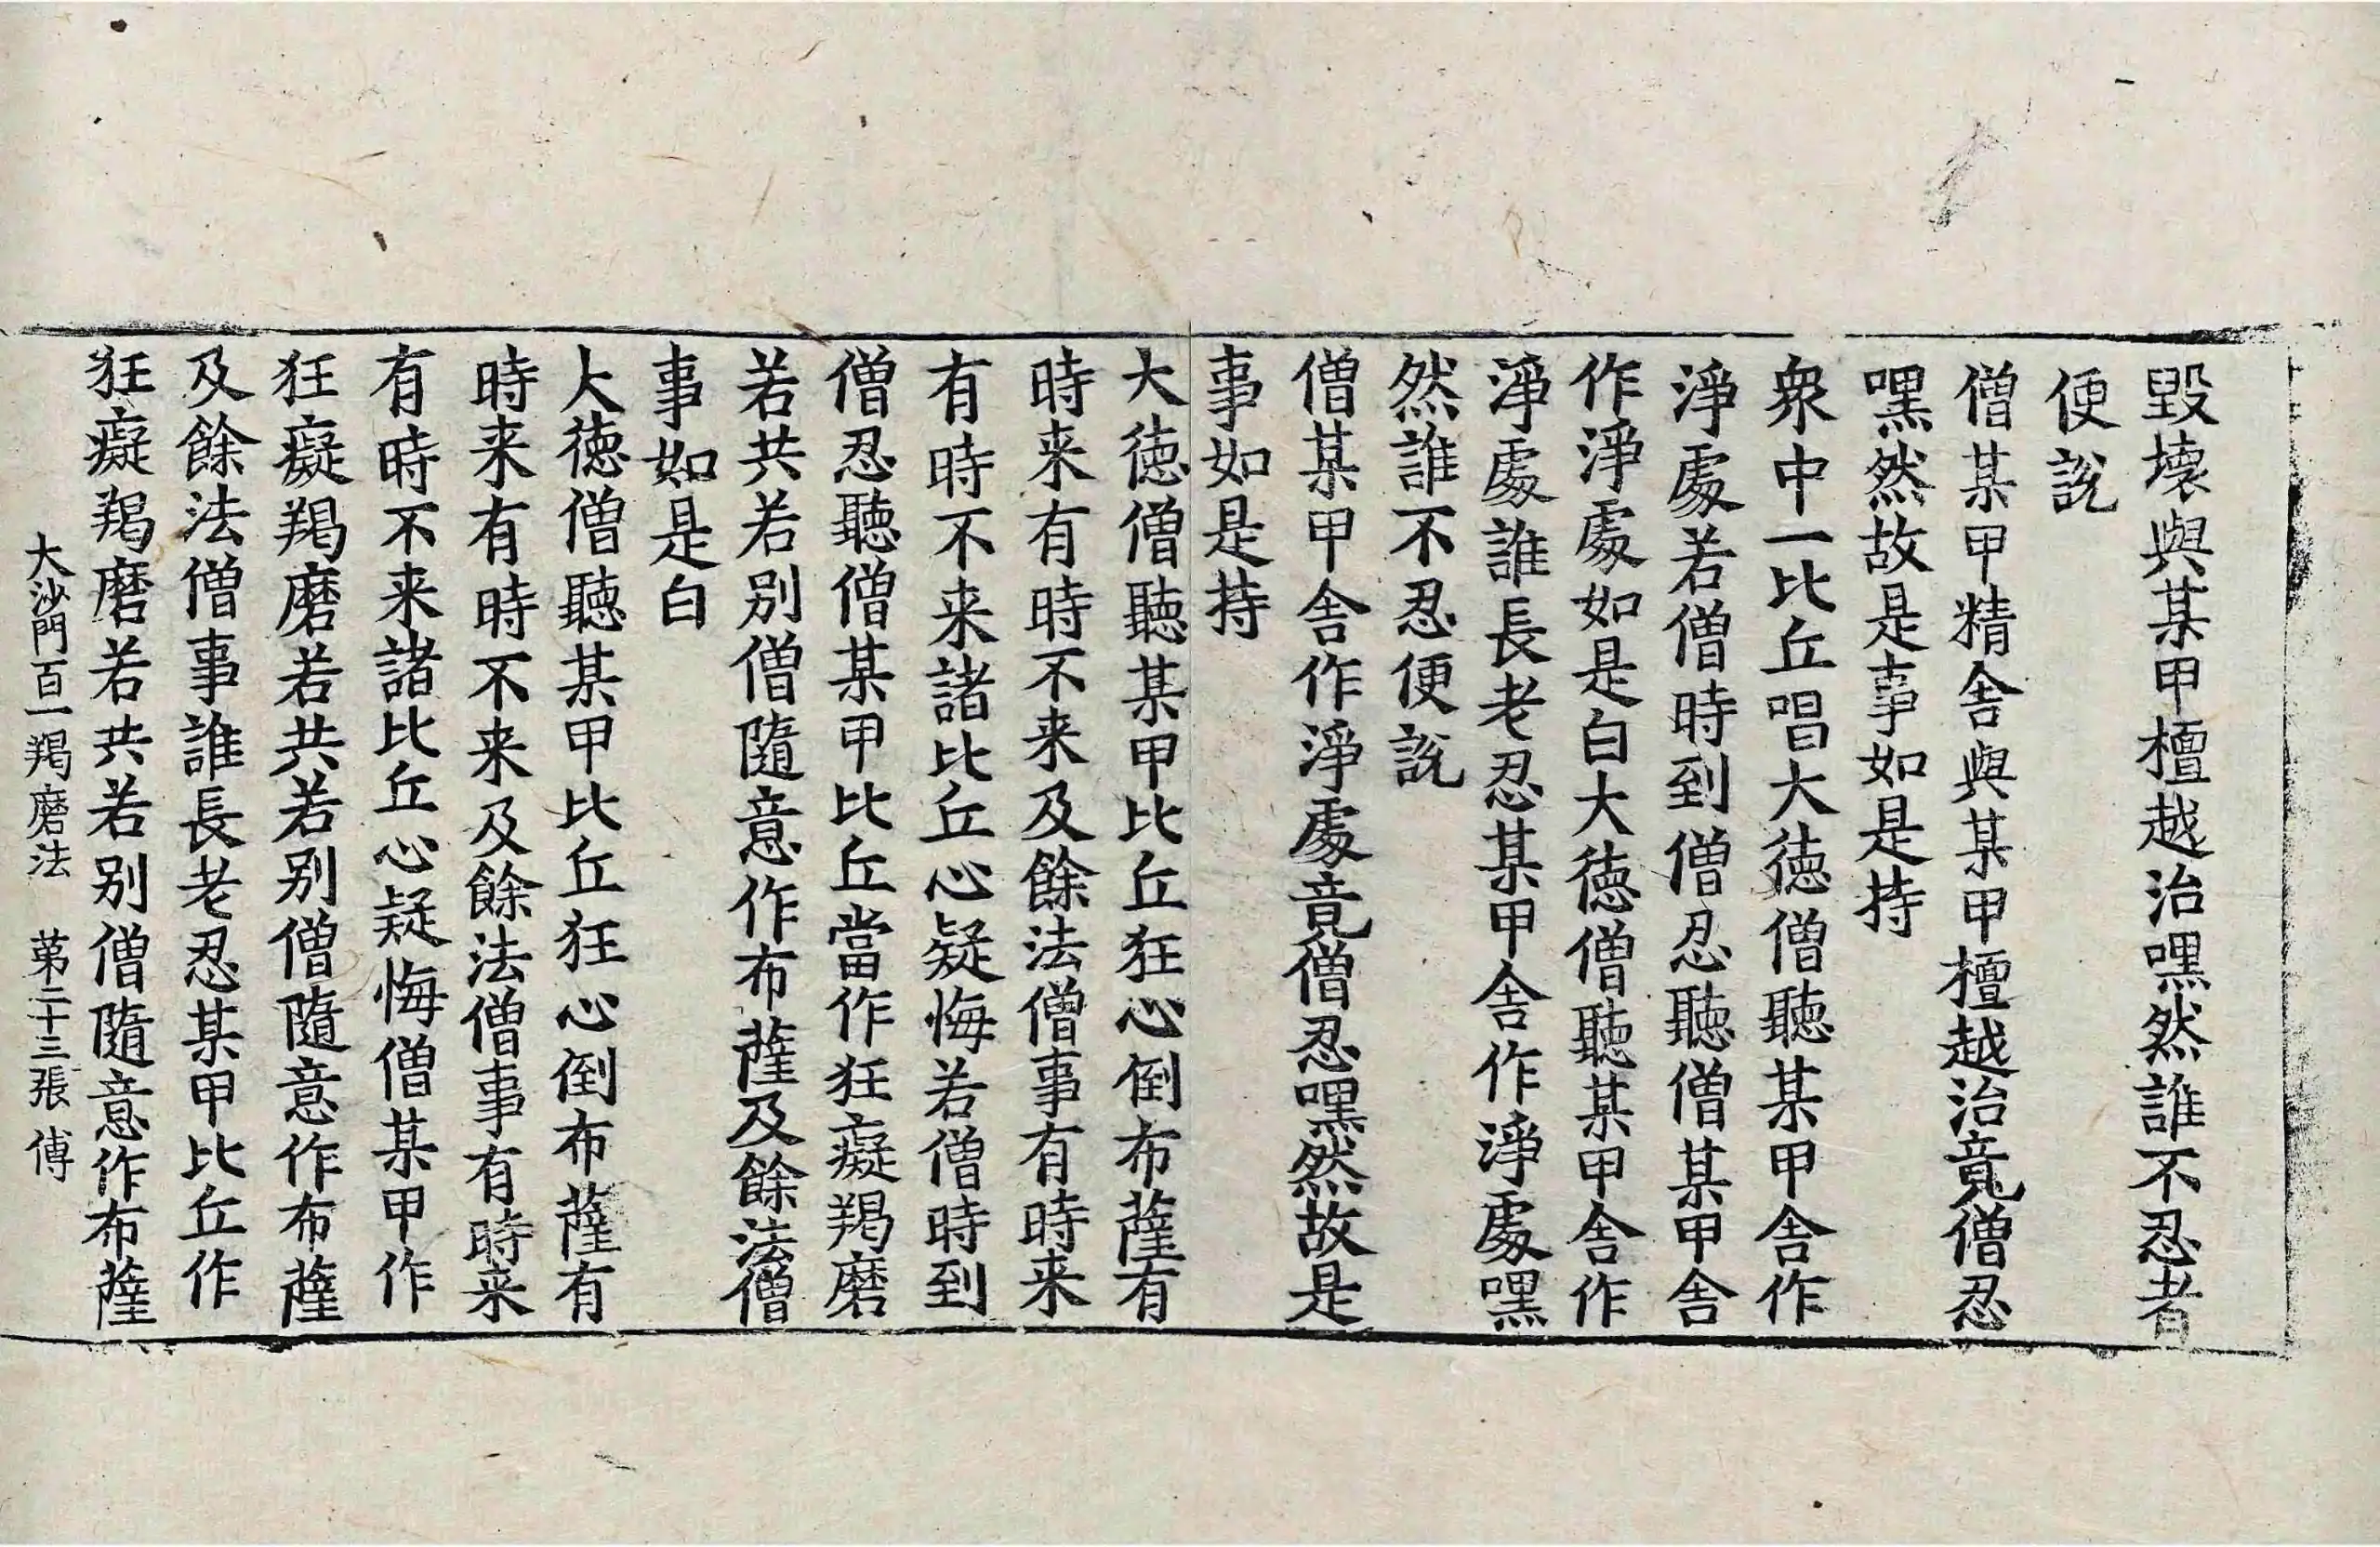 毀壞與某甲檀越治嘿然誰不忍者
便説
僧某甲精舎與某甲檀越治竟僧忍
嘿然故是事如是持
衆中一比丘唱大徳僧聽某甲舎作
淨處若僧時到僧忍聽僧某甲舎
作淨處如是白大徳僧聽某甲舎作
淨處誰長老忍某甲舎作淨處嘿
然誰不忍便説
僧某甲舎作淨處竟僧忍嘿然故是
事如是持
大徳僧聽某甲比丘狂心倒布薩有
時来有時不来及餘法僧事有時来
有時不来諸比丘心疑悔若僧時到
僧忍聽僧某甲比丘當作狂癡羯磨
若共若别僧隨意作布薩及餘法僧
事如是白
大徳僧聽某甲比丘狂心倒布薩有
時来有時不来及餘法僧事有時来
有時不来諸比丘心疑悔僧某甲作
狂癡羯磨若共若别僧隨意作布薩
及餘法僧事誰長老忍某甲比丘作
狂癡羯磨若共若别僧隨意作布薩
大沙門百一羯磨法 苐二十三張 傅